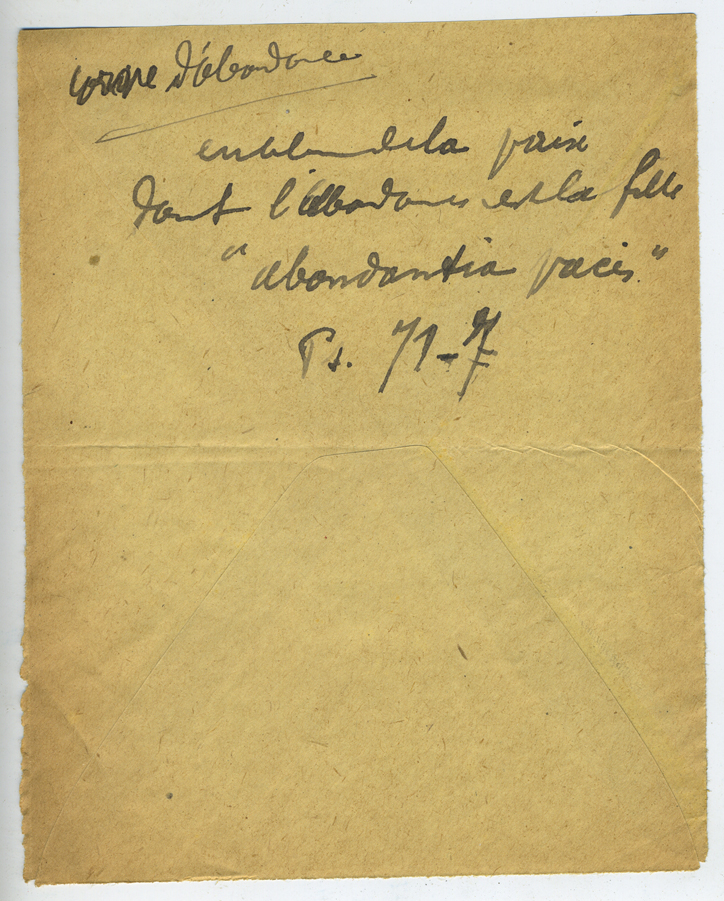 corne d'abondance
emblème de la paix
dont l'abondance est la fille
"abondantia pacis"
Ps. 71-7